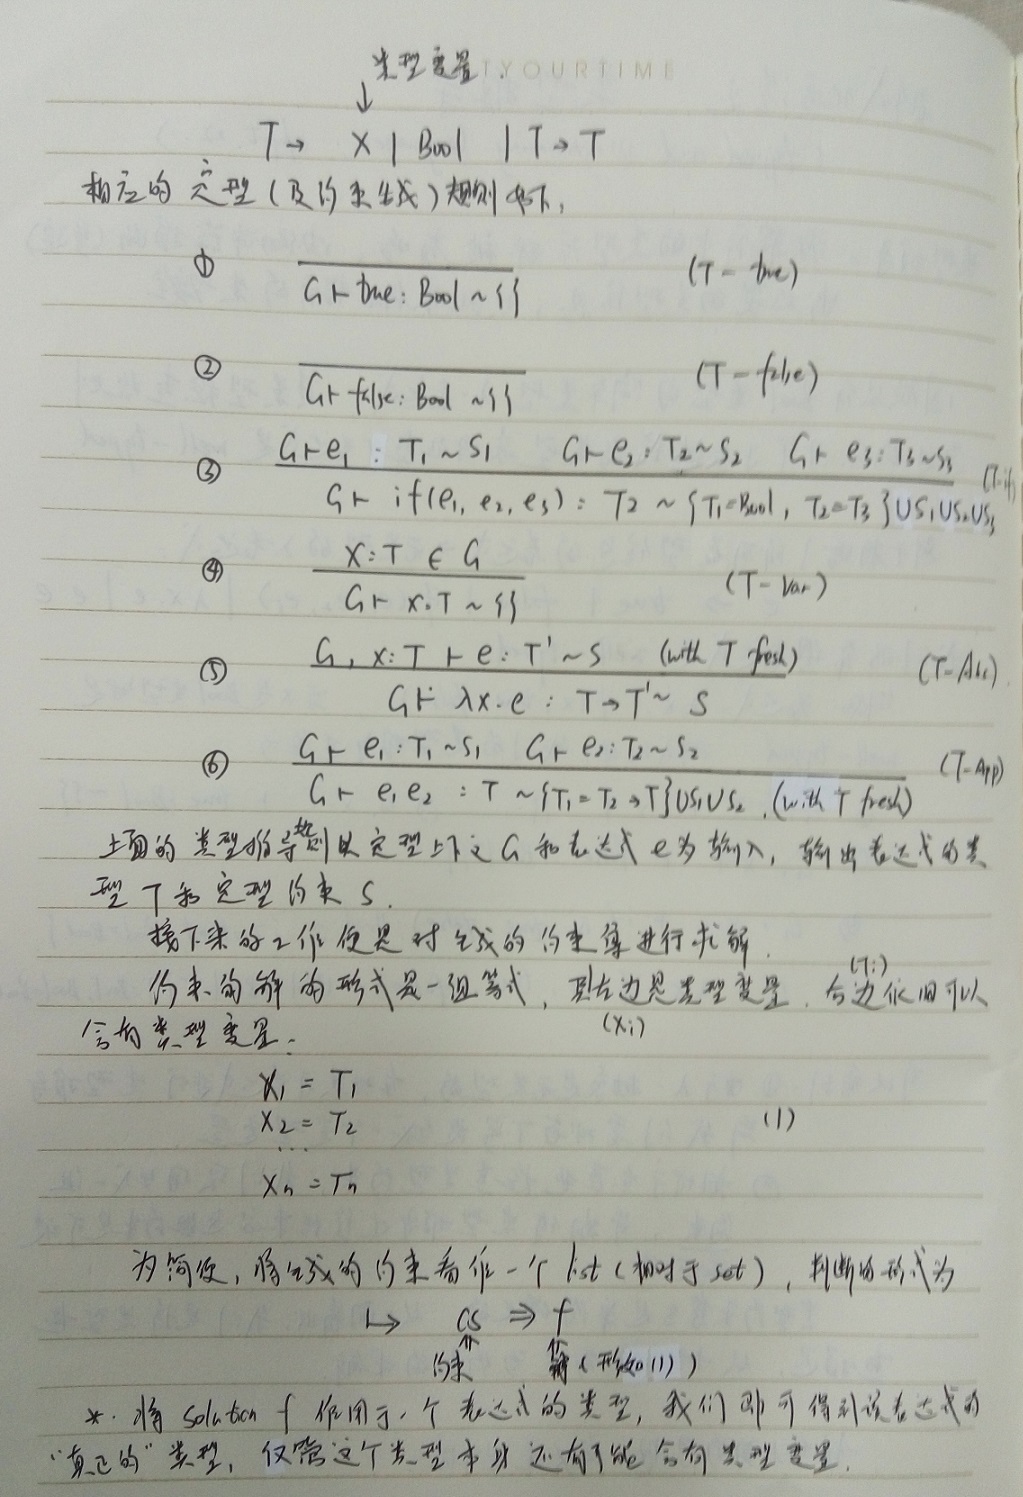 类型变量 TYOURTIME
↓
T → X | Bool | T → T
相应的定型(及约束生成)规则如下:
① ───────── (T-true)
G ⊢ true : Bool ~ {}
② ───────── (T-false)
G ⊢ false : Bool ~ {}
③ G ⊢ e₁ : T₁ ~ S₁   G ⊢ e₂ : T₂ ~ S₂   G ⊢ e₃ : T₃ ~ S₃ (T-if)
G ⊢ if(e₁, e₂, e₃) : T₂ ~ {T₁=Bool, T₂=T₃} ∪ S₁ ∪ S₂ ∪ S₃
④ x : T ∈ G (T-Var)
G ⊢ x : T ~ {}
⑤ G, x : T ⊢ e : T' ~ S (with T fresh) (T-Abs)
G ⊢ λx.e : T → T' ~ S
⑥ G ⊢ e₁ : T₁ ~ S₁   G ⊢ e₂ : T₂ ~ S₂ (T-App)
G ⊢ e₁e₂ : T ~ {T₁ = T₂ → T} ∪ S₁ ∪ S₂ . (with T fresh)
上面的类型推导规则以定型上下文 G 和表达式 e 为输入, 输出表达式的类
型 T 和定型约束 S.
接下来的工作便是对生成的约束集进行求解.
约束的解的形式是一组等式, 其左边是类型变量(Xi), 右边(Ti)依旧可以
含有类型变量.
X₁ = T₁
X₂ = T₂ (1)
...
Xn = Tn
为简便, 将生成的约束看作一个 list (相对于 set), 判断的形式为
↦ CS ⇒ f
⇑ ⇑
约束 解 (形如(1))
*. 将 solution f 作用于一个表达式的类型, 我们即可得到该表达式的
"真正的" 类型, 仅管这个类型本身还有可能含有类型变量.